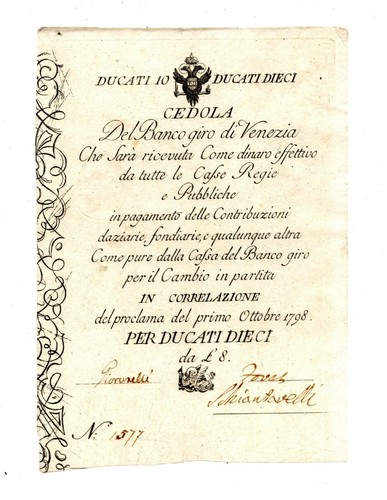 DUCATI 10 DUCATI DIECI
CEDOLA
Del Banco giro di Venezia
Che Sarà ricevuta Come dinaro effettivo
da tutte le Casse Regie
e Pubbliche
in pagamento delle Contribuzioni
daziarie, fondiarie, e qualunque altra
Come pure dalla Cassa del Banco giro
per il Cambio in partita
IN CORRELAZIONE
del proclama del primo Ottobre 1798.
PER DUCATI DIECI
da £ 8.
Schiantarelli
N: 1577